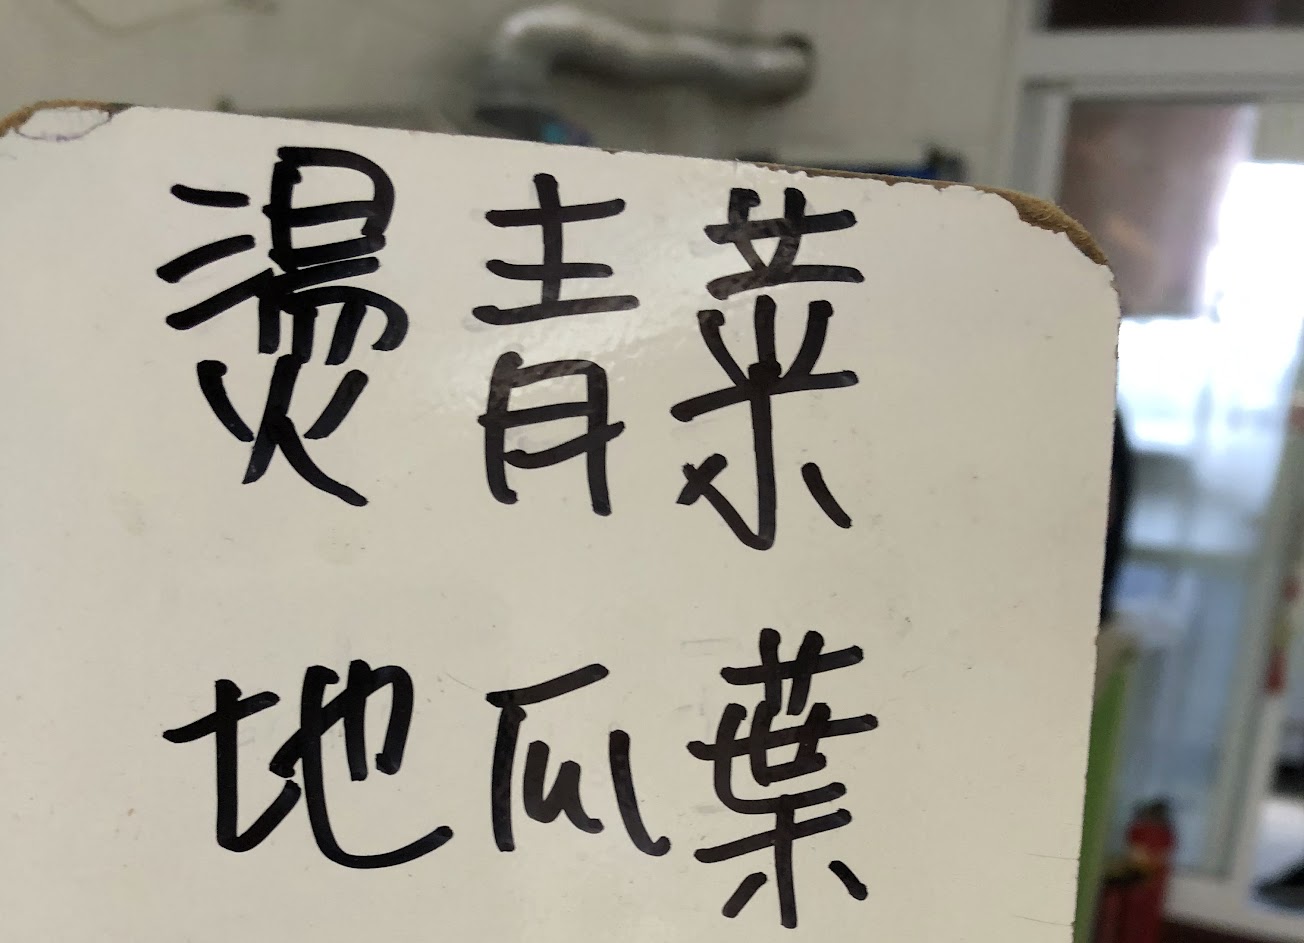 燙青菜
地瓜葉